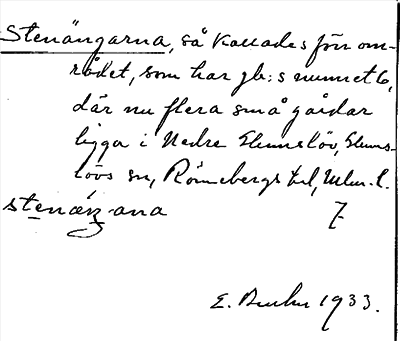 Stenängarna, så kallades förr om-
rådet, som har gb:s nummet 6,
där nu flera små gårdar
ligga i Nedre Glumslöv, Glums-
lövs sn, Rönnebergs hd, Mlm. l.
stenæŋana 7
E. 1933.